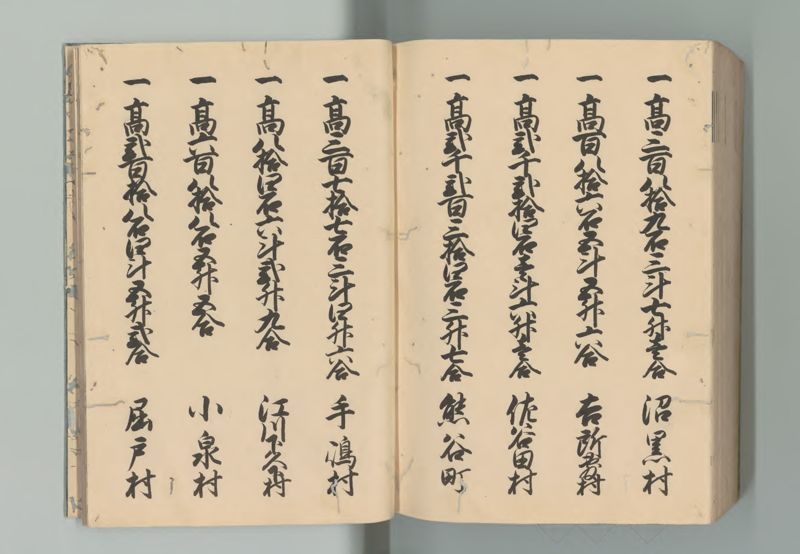 一高三百八拾九石三斗七升壱合 沼黒村
一高百八拾六石五斗五升六合 吉所敷村
一高弐千弐拾四石壱斗六升壱合 佐谷田村
一高弐千弐百三拾四石三升七合 熊谷町
一高三百七拾七石三斗四升六合 手嶋村
一高八拾四石六斗弐升九合 江川下久下村
一高一百八拾八石五升五合 小泉村
一高弐百拾八石四斗五升弐合 屈戸村